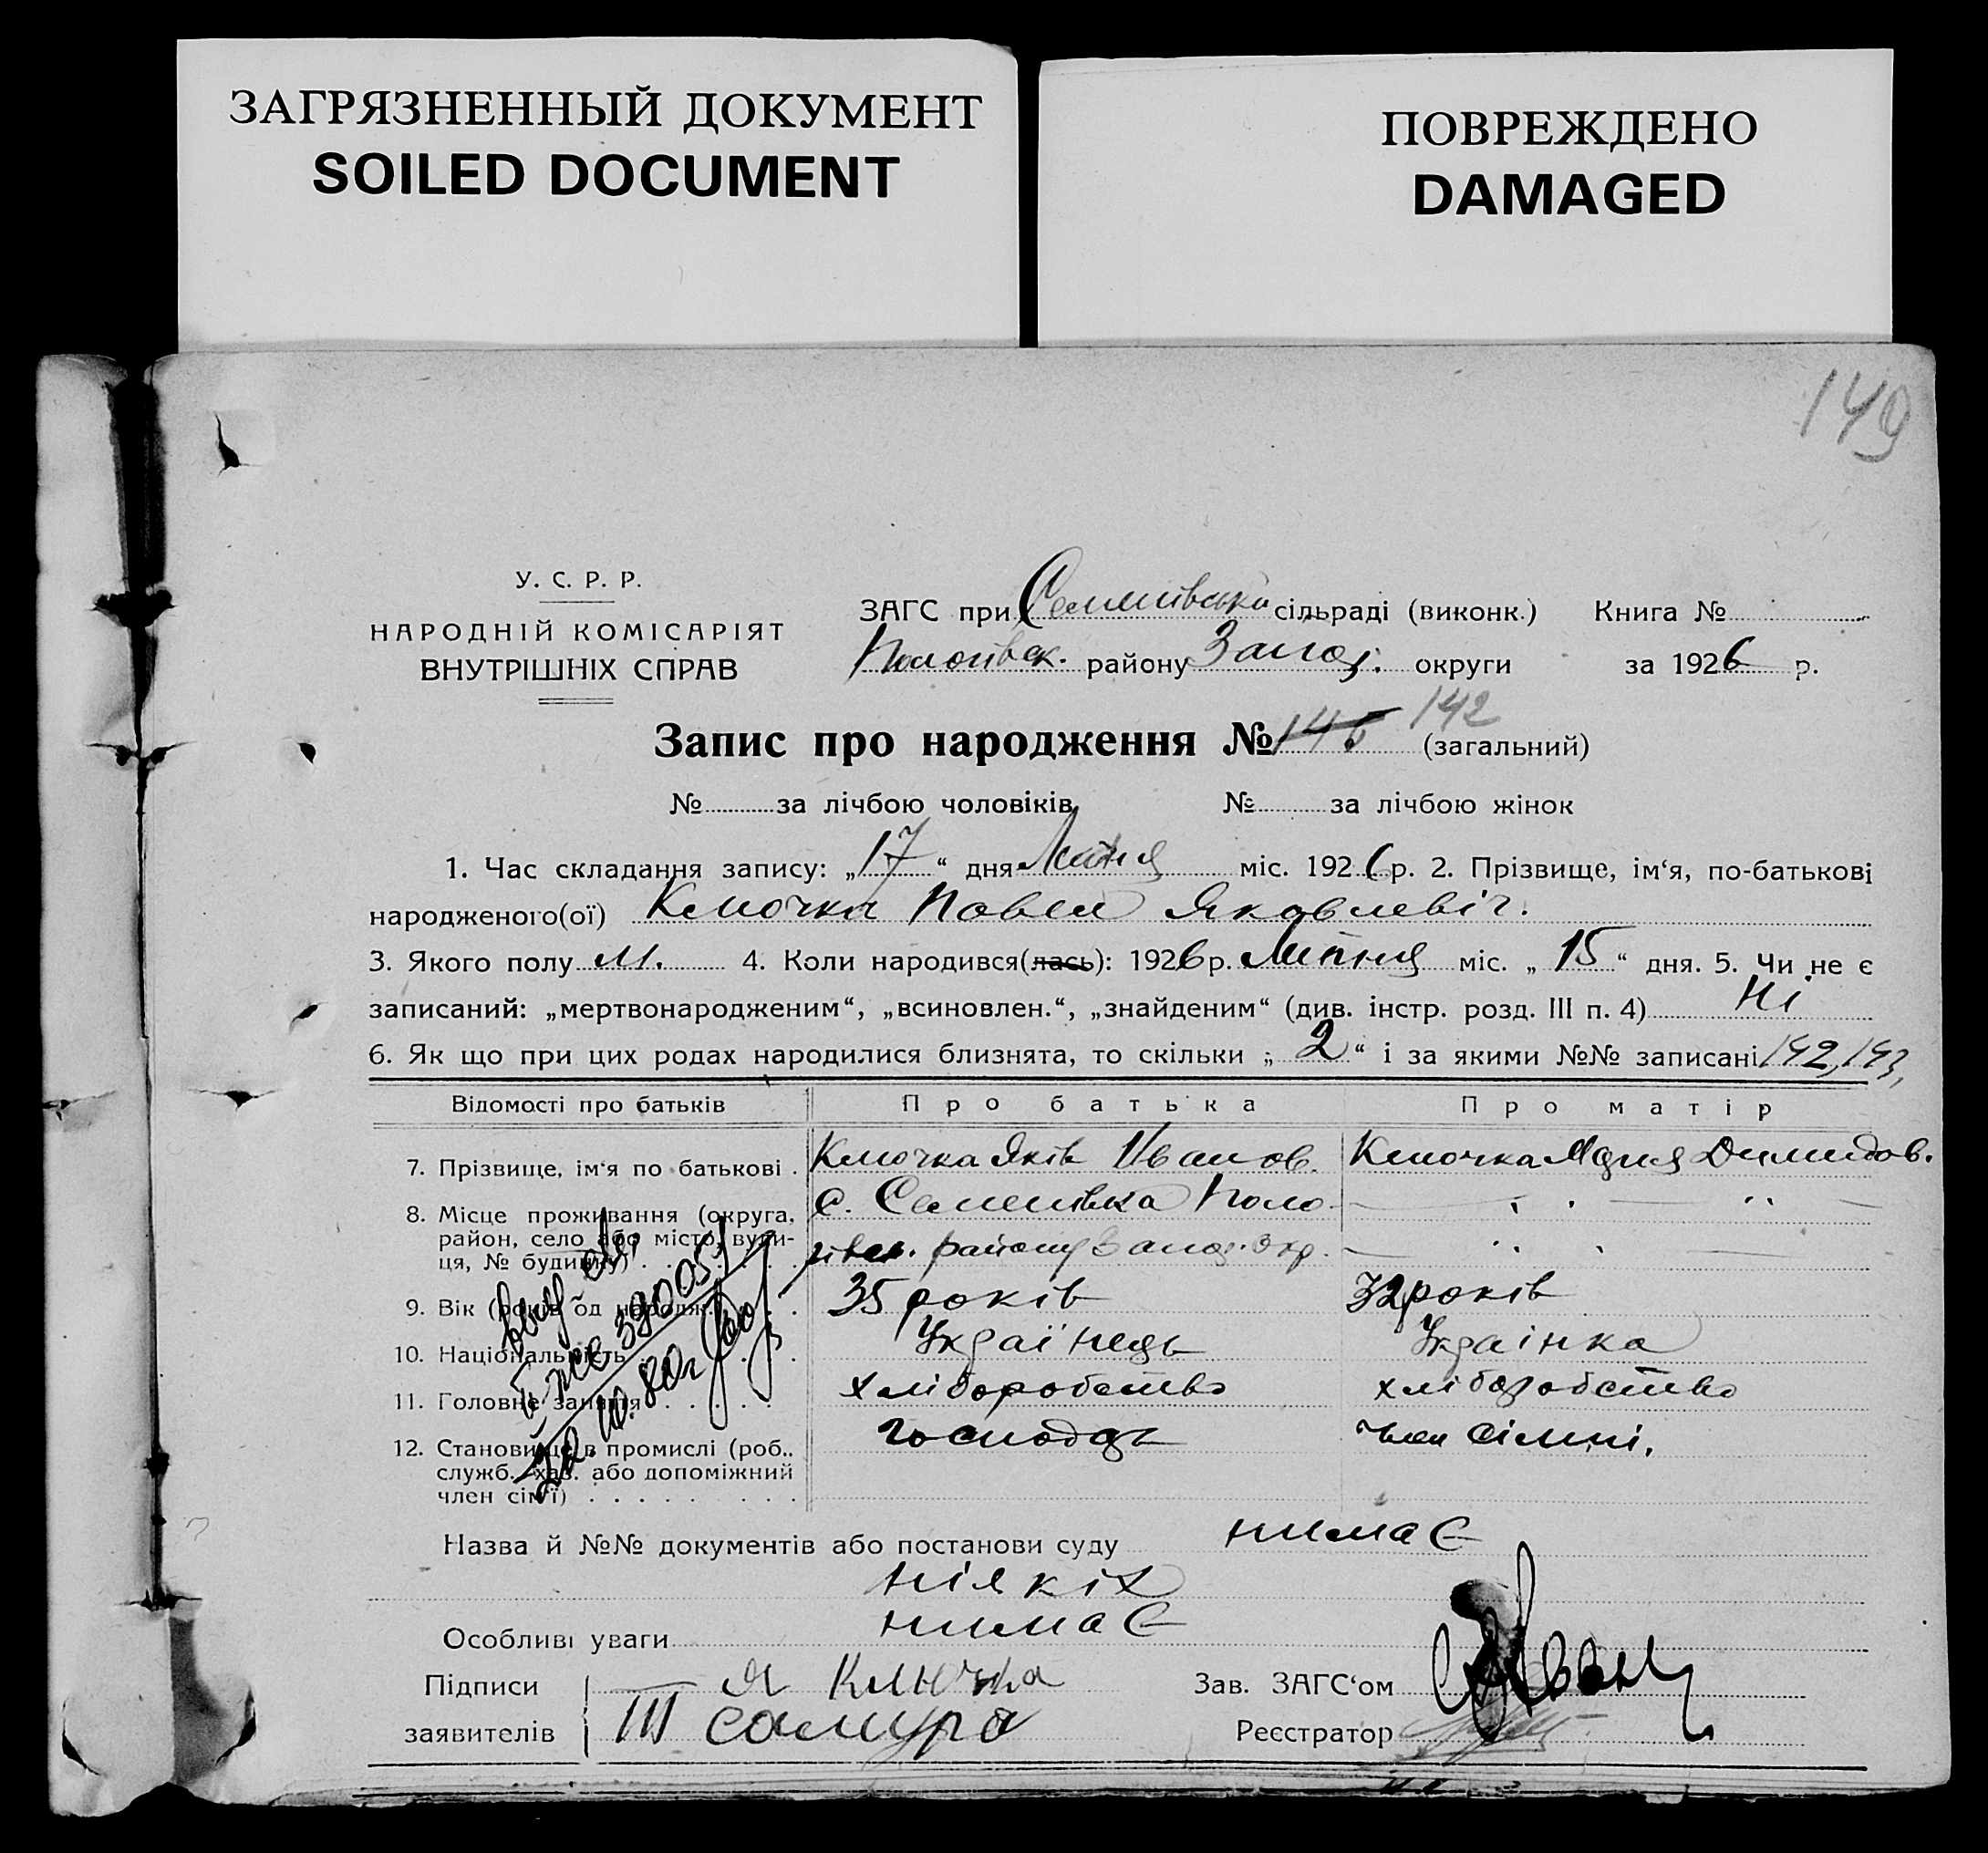 ЗАГРЯЗНЕННЫЙ ДОКУМЕНТ
SOILED DOCUMENT
ПОВРЕЖДЕНО
DAMAGED
149
У. С. Р. Р.
НАРОДНІЙ КОМІСАРІЯТ
ВНУТРІШНІХ СПРАВ
ЗАГС при Семенівська сільраді (виконк.) Книга №
Пологівск. району Запор. округи за 1926 р.
Запис про народження № 142 (загальний)
№ за лічбою чоловіків № за лічбою жінок
1. Час складання запису: „17“ дня Липня міс. 1926 р. 2. Прізвище, ім‘я, по-батькові
народженого(ої) Ключка Павел Яковлевіч.
3. Якого полу м. 4. Коли народився(лась): 1926 р. Липня міс. „15“ дня. 5. Чи не є
записаний: „мертвонародженим“, „всиновлен.“, „знайденим“ (див. інстр. розд. III п. 4) Ні
6. Як що при цих родах народилися близнята, то скільки „2“ і за якими №№ записані 142, 143,
Відомості про батьків Про батька Про матір
7. Прізвище, ім‘я по батькові . Ключка Яків Иванов. Ключка Мария Димидов.
8. Місце проживання (округа, с. Семенівка Поло-
район, село або місто, вули- гівск. району Запор. Окр.
ця, № будинку)
9. Вік (років од народж. 35 років 32 років
10. Національність Українець Українка
11. Головне заняття хліборобство хліборобство
12. Становище в промислі (роб., господарь член сімні.
служб., хаз. або допоміжний
член сім‘ї)
20.10.80г
Назва й №№ документів або постанови суду нимає
ніякіх
Особливі уваги нимає
Підписи Я Ключка Зав. ЗАГС‘ом
заявителів III самура Реєстратор